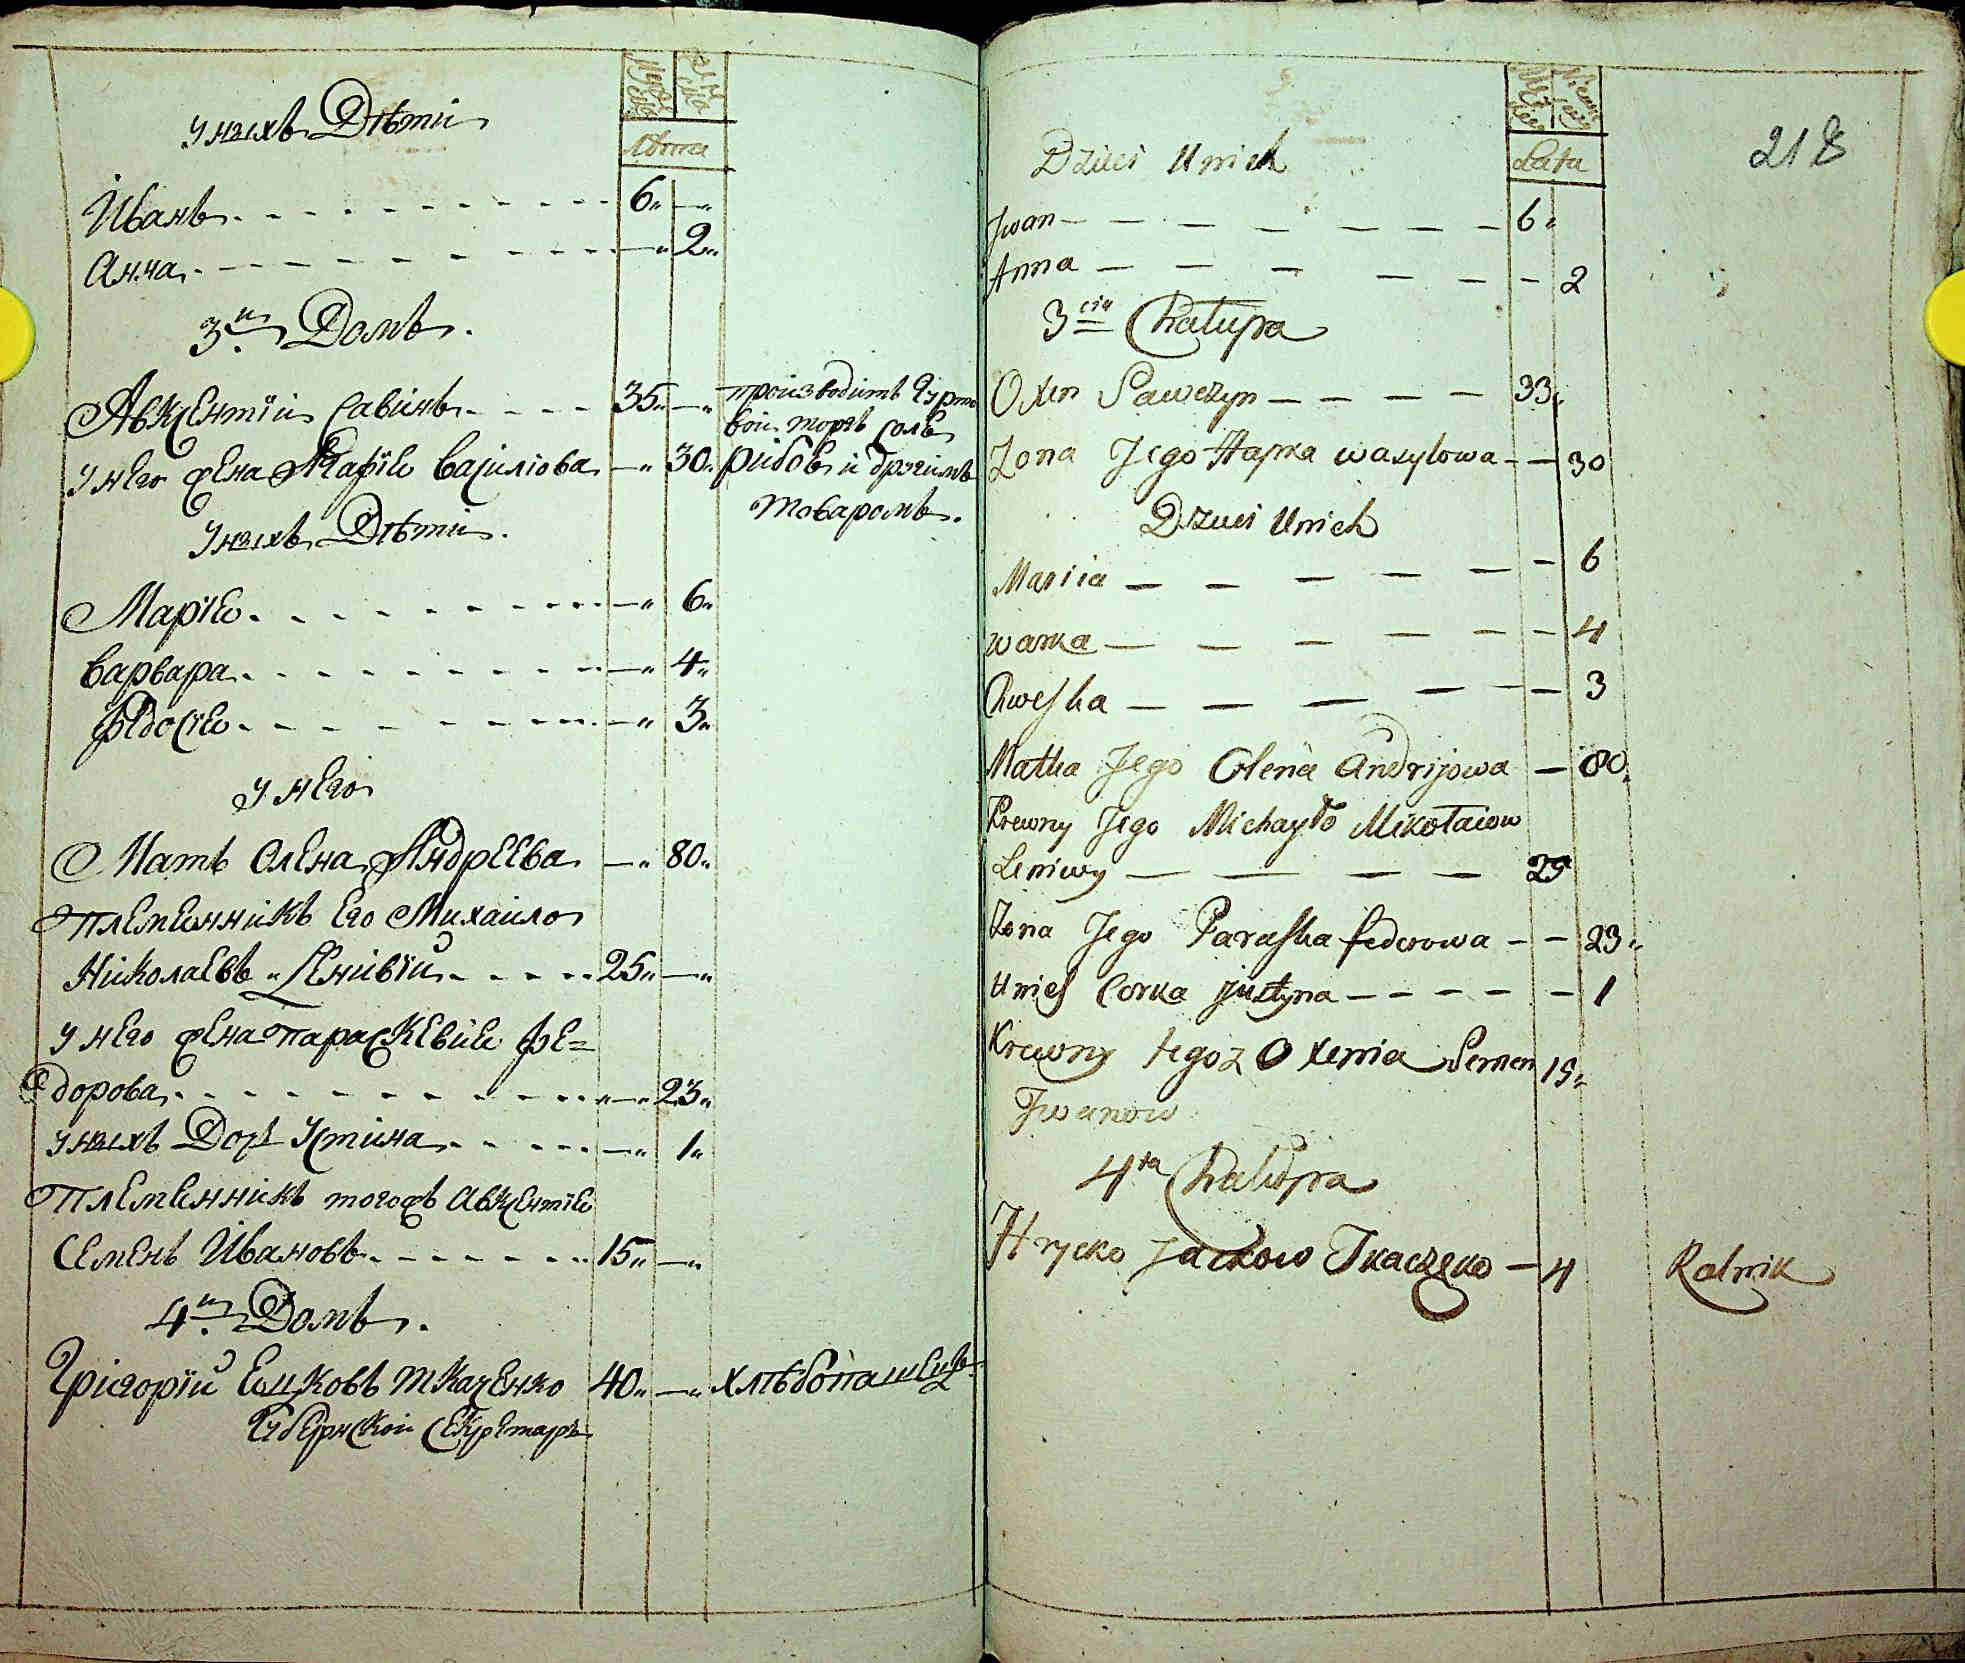 Мужеска
Женска
Лета
У ныхъ Дѣти
Иванъ 6
Анна 2
3й Домъ.
Авксентій Савинъ 35 производитъ Гурто
вой торгъ соль
У него жена Агафіе Василіова 30 рибою и другимъ
товаромъ.
У ныхъ Дѣти.
Маріе 6
Варвара 4
Федосіе 3
У него
Мать Олена Андреева 80
Племенникъ его Михаило
Николаевъ Лѣнивій 25
У него жена Параскевие Фе=
дорова 23
У ныхъ Дочь Устина 1
Племенникъ тогожъ Авксентіе
Семенъ Ивановъ 15
4й Домъ.
Григорій Ецковъ Ткаченко 40 хлѣбопашецъ
Губернской Секретаръ
218
Lata
Dzieci Unich
Jwan 6
Anna 2
3cia Chalupa
Oxen Sawczyn 33
Zona Jego Hapka wasylowa 30
Dzieci Unich
Mariia 6
warka 4
Chweska 3
Matka Jego Olena Andrijowa 80
Krewny Jego Michayło Mikołaiow
Leniwy 25
Zona Jego Paraska federowa 23
Unich Corka justyna 1
Krewny tegoz Oxenia Semen 15
Jwanow
4ta Chalupa
Hrycko Jackow Tkaczeko 4 Rolnik